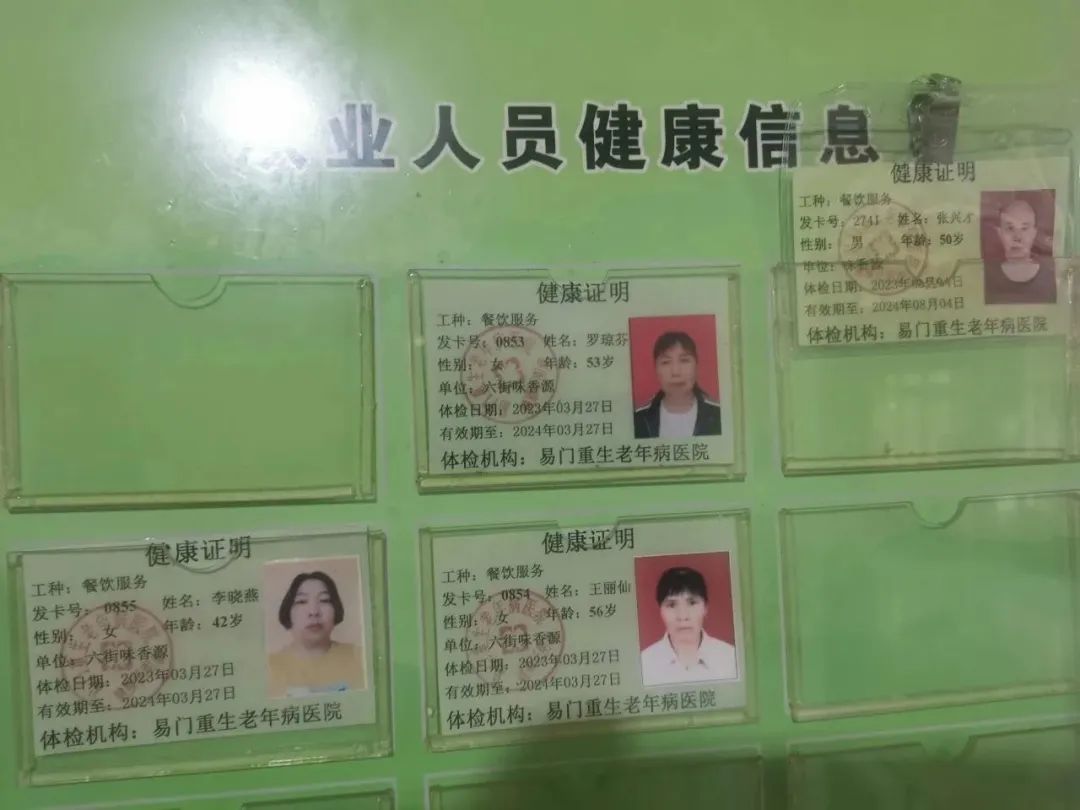 业人员健康信息
健康证明
工种：餐饮服务
发卡号：2741 姓名：张兴才
性别：男 年龄：50岁
单位：味香源
体检日期：2023年08月04日
有效期至：2024年08月04日
体检机构：易门重生老年病医院
健康证明
工种：餐饮服务
发卡号：0853 姓名：罗琼芬
性别：女 年龄：53岁
单位：六街味香源
体检日期：2023年03月27日
有效期至：2024年03月27日
体检机构：易门重生老年病医院
健康证明
工种：餐饮服务
发卡号：0855 姓名：李晓燕
性别：女 年龄：42岁
单位：六街味香源
体检日期：2023年03月27日
有效期至：2024年03月27日
体检机构：易门重生老年病医院
健康证明
工种：餐饮服务
发卡号：0854 姓名：王丽仙
性别：女 年龄：56岁
单位：六街味香源
体检日期：2023年03月27日
有效期至：2024年03月27日
体检机构：易门重生老年病医院